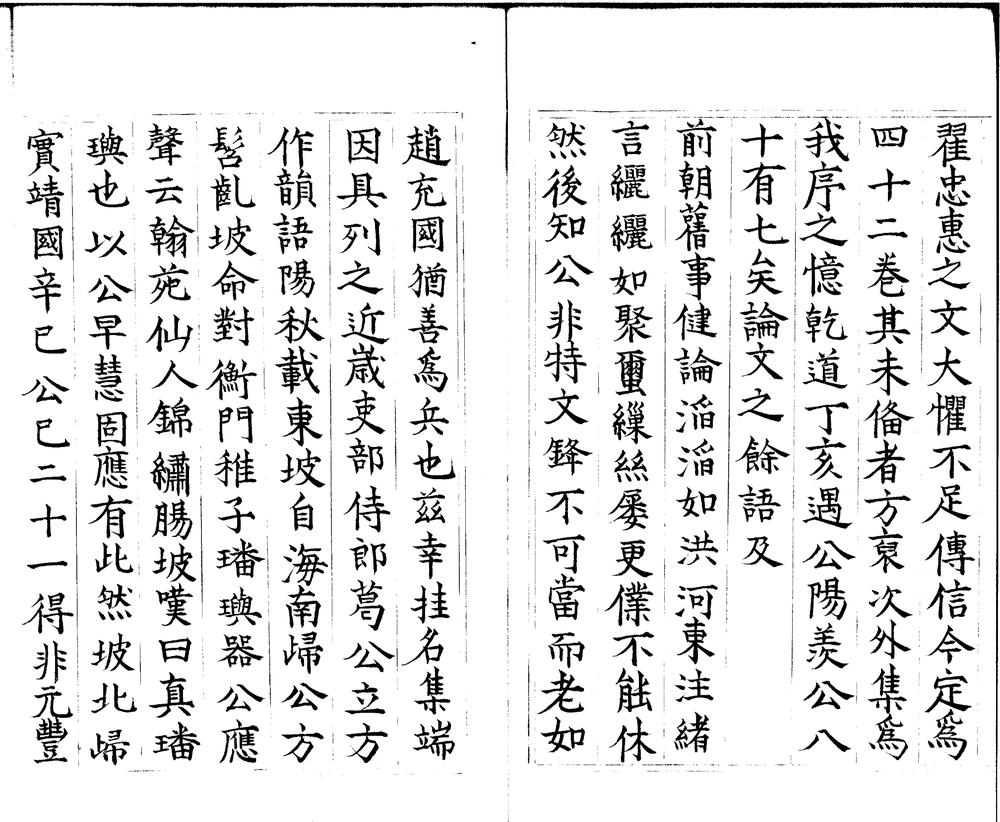 翟忠惠之文大懼不足傳信今定爲
四十二巻其未俻者方裒次外集爲
我序之憶乾道丁亥遇公陽羨公八
十有七矣論文之餘語及
前朝舊事健論滔滔如洪河東注緒
言纚纚如聚蠒繅絲屡更僕不能休
然後知公非特文鋒不可當而老如
趙充國猶善爲兵也兹幸挂名集端
因具列之近歳吏部侍郎葛公立方
作韻語陽秋載東坡自海南歸公方
髫齓坡命對衡門稚子璠璵器公應
聲云翰苑仙人錦繡腸坡嘆曰真璠
璵也以公早慧固應有此然坡北歸
實靖國辛巳公巳二十一得非元豐